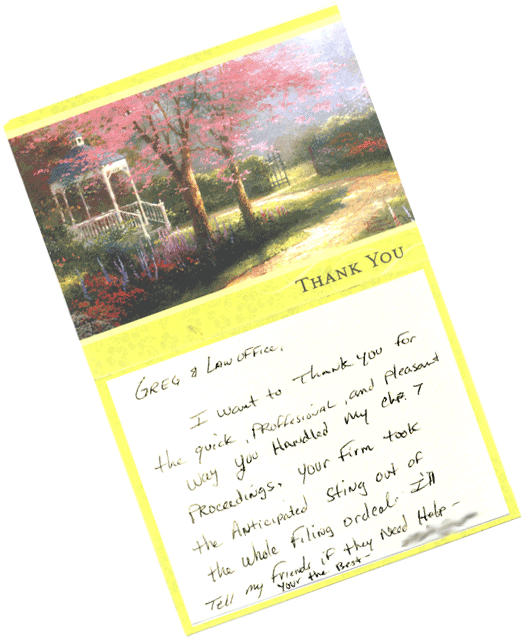 THANK YOU
GREG & LAW OFFICE,
I want to Thank you for
the quick, Proffesional, and Pleasant
way you Handled my chp. 7
Proceedings. Your Firm took
the Anticipated Sting out of
the whole Filing ordeal. I'll
Tell my Friends if they Need Help-
your the Best-